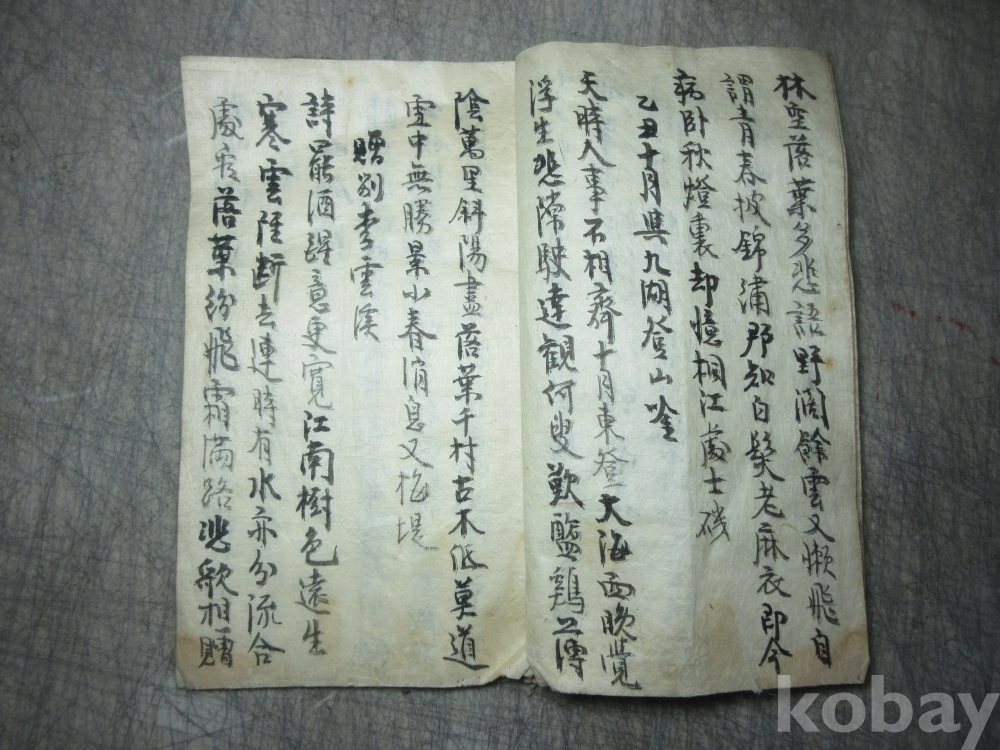 林空落葉多悲語野闊餘雲又懶飛自
謂青春披錦繡那知白髮老麻衣即今
病卧秋燈裏却憶桐江處士磯
乙丑十月與九湖登山唫
天時人事不相齊十月東登大海西晚覽
浮生悲隙駛達觀何叟歎醯鷄
陰萬里斜陽盡落葉千村古木低莫道
雪中無勝景小春消息又梅堤
贈別李雲溪
詩罷酒醒意更寬江南樹色遠生
寒雲陸断去連時有水亦分流合
處看落葉紛飛霜滿路悲歌相贈
kobay